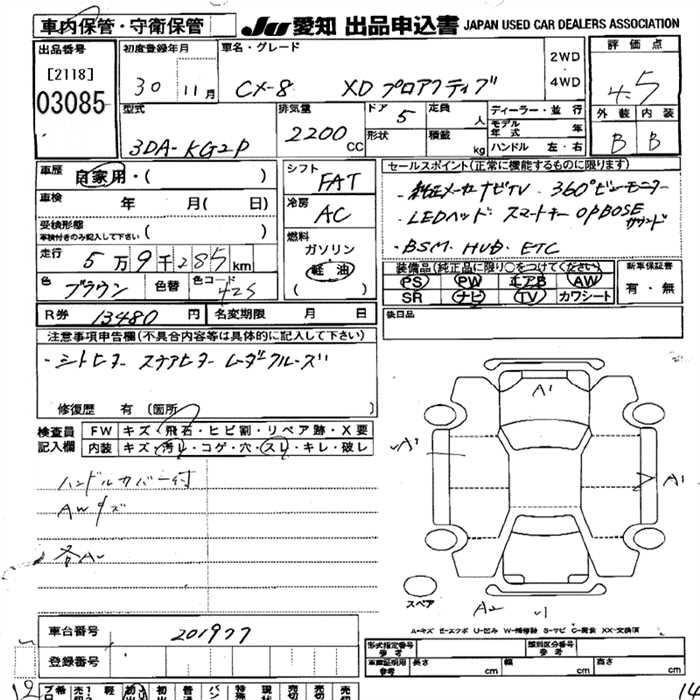 車内保管・守衛保管
JU愛知 出品申込書 JAPAN USED CAR DEALERS ASSOCIATION
出品番号
[2118]
03085
初度登録年月
30 11月
車名・グレード
CX-8 XD プロアクティブ
2WD
4WD
評価点
4.5
外装 内装
B B
型式
3DA-KG2P
排気量
2200 CC
ドア 5
形状
定員 人
積載 kg
ディーラー・並行
モデル年式 年
ハンドル 左・右
車歴 自家用・( )
車検 年 月( 日)
受検形態
車検付きのみ記入して下さい ( )
走行 5万9千285km
色 ブラウン 色替 色コード 42S
シフト
FAT
冷房
AC
燃料
ガソリン
軽油
( )
セールスポイント(正常に機能するものに限ります)
・純正メーカーナビTV・360°ビューモニター
・LEDヘッド スマートキー OPBOSEサウンド
・BSM・HUD・ETC
装備品(純正品に限り○をつけてください)
PS PW エアB AW
SR ナビ TV カワシート
新車保証書
有・無
R券 13480円 名変期限 月 日
後日品
注意事項申告欄(不具合内容等は具体的に記入して下さい)
・シートヒーター ステアヒーター レーダークルーズ
修復歴 有(箇所
検査員
記入欄
FW キズ・飛石・ヒビ割・リペア跡・X要
内装 キズ・汚れ・コゲ・穴・スレ・キレ・破レ
ハンドルカバー付
AWキズ
各A
A1
A1
A1
スペア
A2
A-キズ E-エクボ U-凹み W-補修跡 S-サビ C-腐食 XX-交換済
車台番号 201977
登録番号
形式指定番号 参考
類別区分番号 参考
車庫証明用 参考 長さ cm 幅 cm 高さ cm